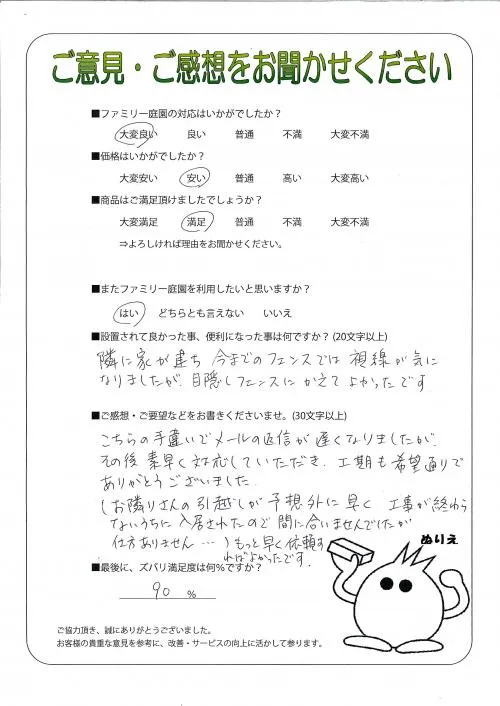 ご意見・ご感想をお聞かせください
■ファミリー庭園の対応はいかがでしたか？
大変良い 良い 普通 不満 大変不満
■価格はいかがでしたか？
大変安い 安い 普通 高い 大変高い
■商品はご満足頂けましたでしょうか？
大変満足 満足 普通 不満 大変不満
⇒よろしければ理由をお聞かせください。
■またファミリー庭園を利用したいと思いますか？
はい どちらとも言えない いいえ
■設置されて良かった事、便利になった事は何ですか？(20文字以上)
隣に家が建ち 今までのフェンスでは 視線が気に
なりましたが、目隠しフェンスに かえて よかったです
■ご感想・ご要望などをお書きくださいませ。(30文字以上)
こちらの手違いでメールの返信が遅くなりましたが、
その後 素早く対応していただき、工期も希望通りで
ありがとうございました。
(お隣りさんの引越しが予想外に早く 工事が終わら
ないうちに入居されたので間に合いませんでしたが
仕方ありません…)もっと早く依頼す
ればよかったです。
ぬりえ
■最後に、ズバリ満足度は何%ですか？
90 %
ご協力頂き、誠にありがとうございました。
お客様の貴重な意見を参考に、改善・サービスの向上に活かして参ります。